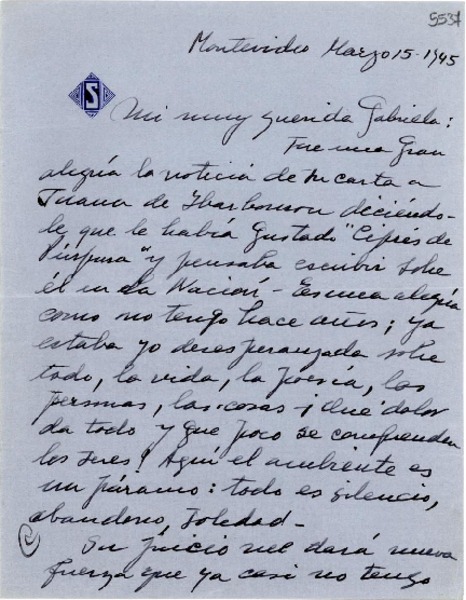 5537
Montevideo Marzo 15-1945
S
Mi muy querida Gabriela:
Fue una Gran
alegría la noticia de su carta a
Juana de Ibarbourou diciéndo-
le que le había Gustado "Ciprés de
Púrpura" y pensaba escribir sobre
él en La Nación - Es una alegría
como no tengo hace años; ya
estaba yo desesperanzada sobre
todo, la vida, la poesía, las
personas, las cosas - ¡Qué dolor
da todo y que poco se comprenden
los seres! Aquí el ambiente es
un páramo: todo es silencio,
abandono, soledad -
Su juicio me dará nueva
fuerza que ya casi no tengo